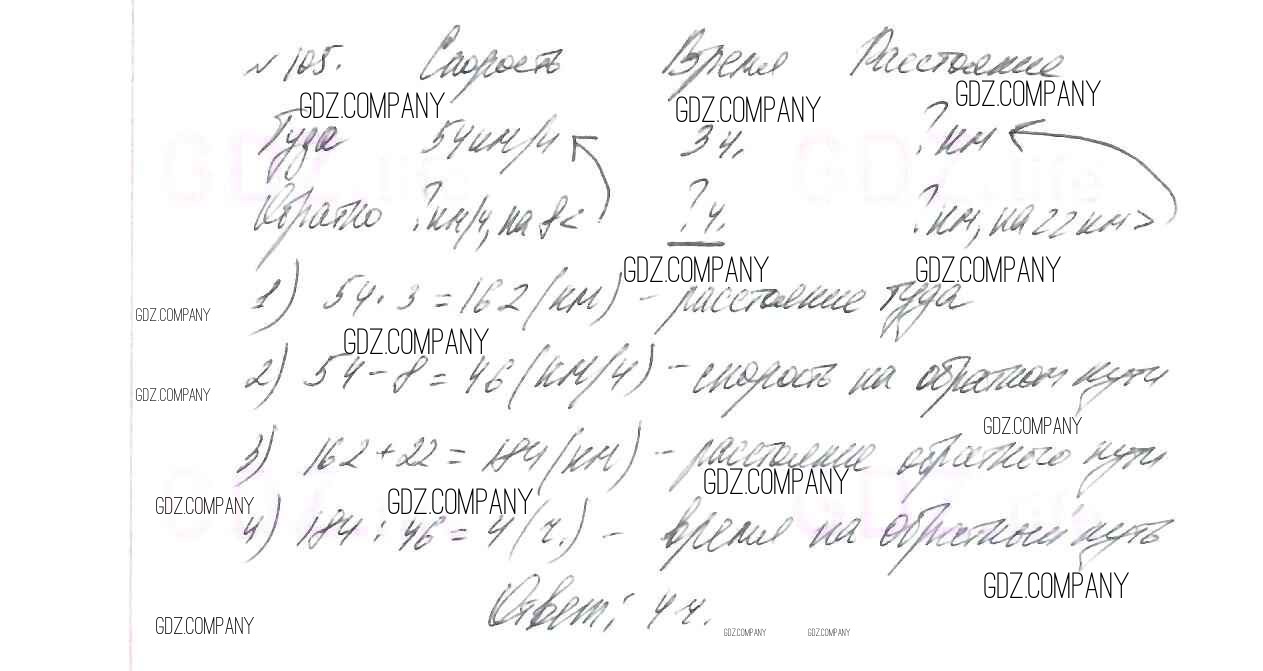 № 105. Скорость Время Расстояние
GDZ.COMPANY GDZ.COMPANY GDZ.COMPANY
Туда 54 км/ч 3 ч. ? км
GDZ.life GDZ.life
Обратно ? км/ч, на 8 < ? ч. ? км, на 22 км >
GDZ.COMPANY GDZ.COMPANY
1) 54 · 3 = 162 (км) – расстояние туда
GDZ.COMPANY
GDZ.COMPANY
2) 54 – 8 = 46 (км/ч) – скорость на обратном пути
GDZ.COMPANY
GDZ.COMPANY
3) 162 + 22 = 184 (км) – расстояние обратного пути
GDZ.COMPANY
GDZ.COMPANY GDZ.COMPANY
4) 184 : 46 = 4 (ч.) – время на обратный путь
GDZ.COMPANY
Ответ: 4 ч.
GDZ.COMPANY GDZ.COMPANY GDZ.COMPANY